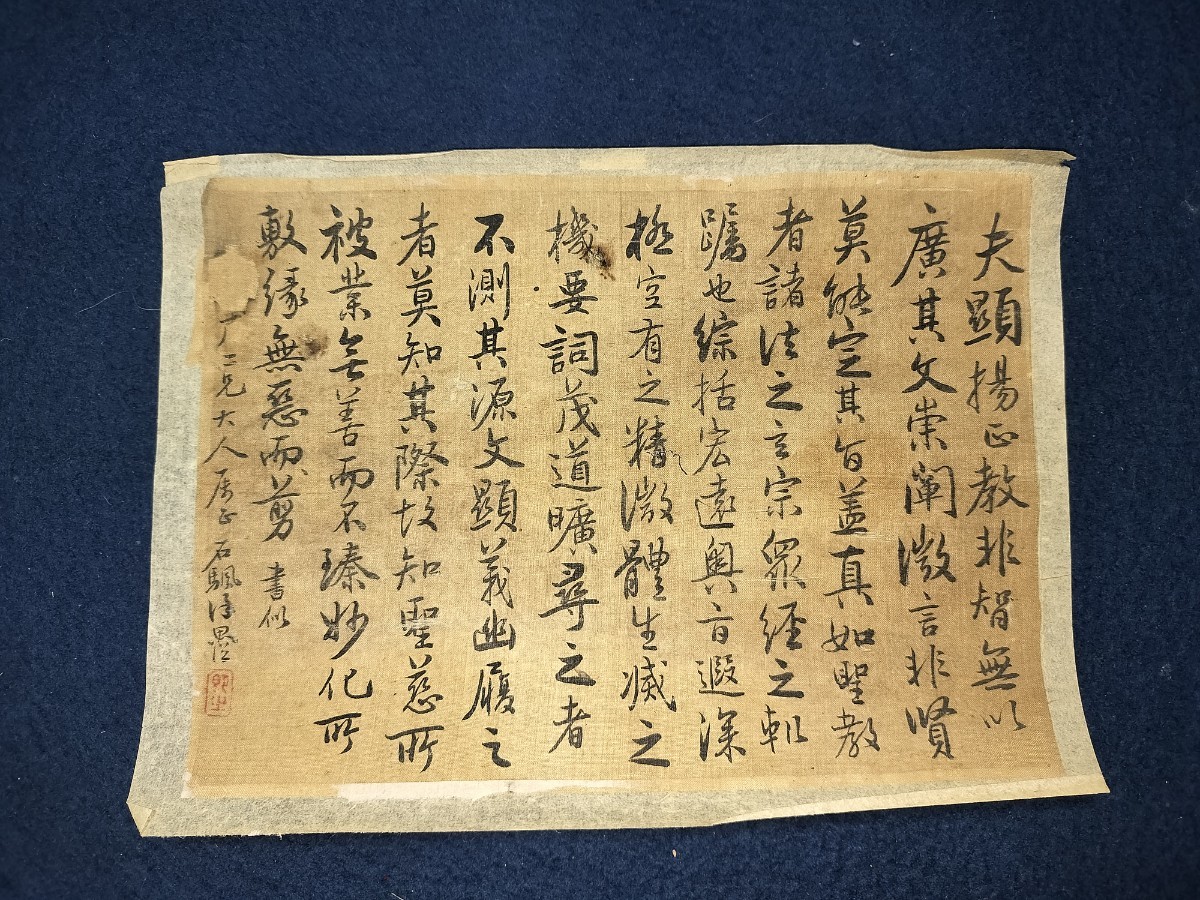 夫顯揚正教非智無以
廣其文崇闡微言非賢
莫能定其旨蓋真如聖教
者諸法之玄宗眾經之軌
躅也綜括宏遠奧旨遐深
極空有之精微體生滅之
機要詞茂道曠尋之者
不測其源文顯義幽履之
者莫知其際故知聖慈所
被業無善而不臻妙化所
敷緣無惡而不翦 書似
二兄大人属正 石騆